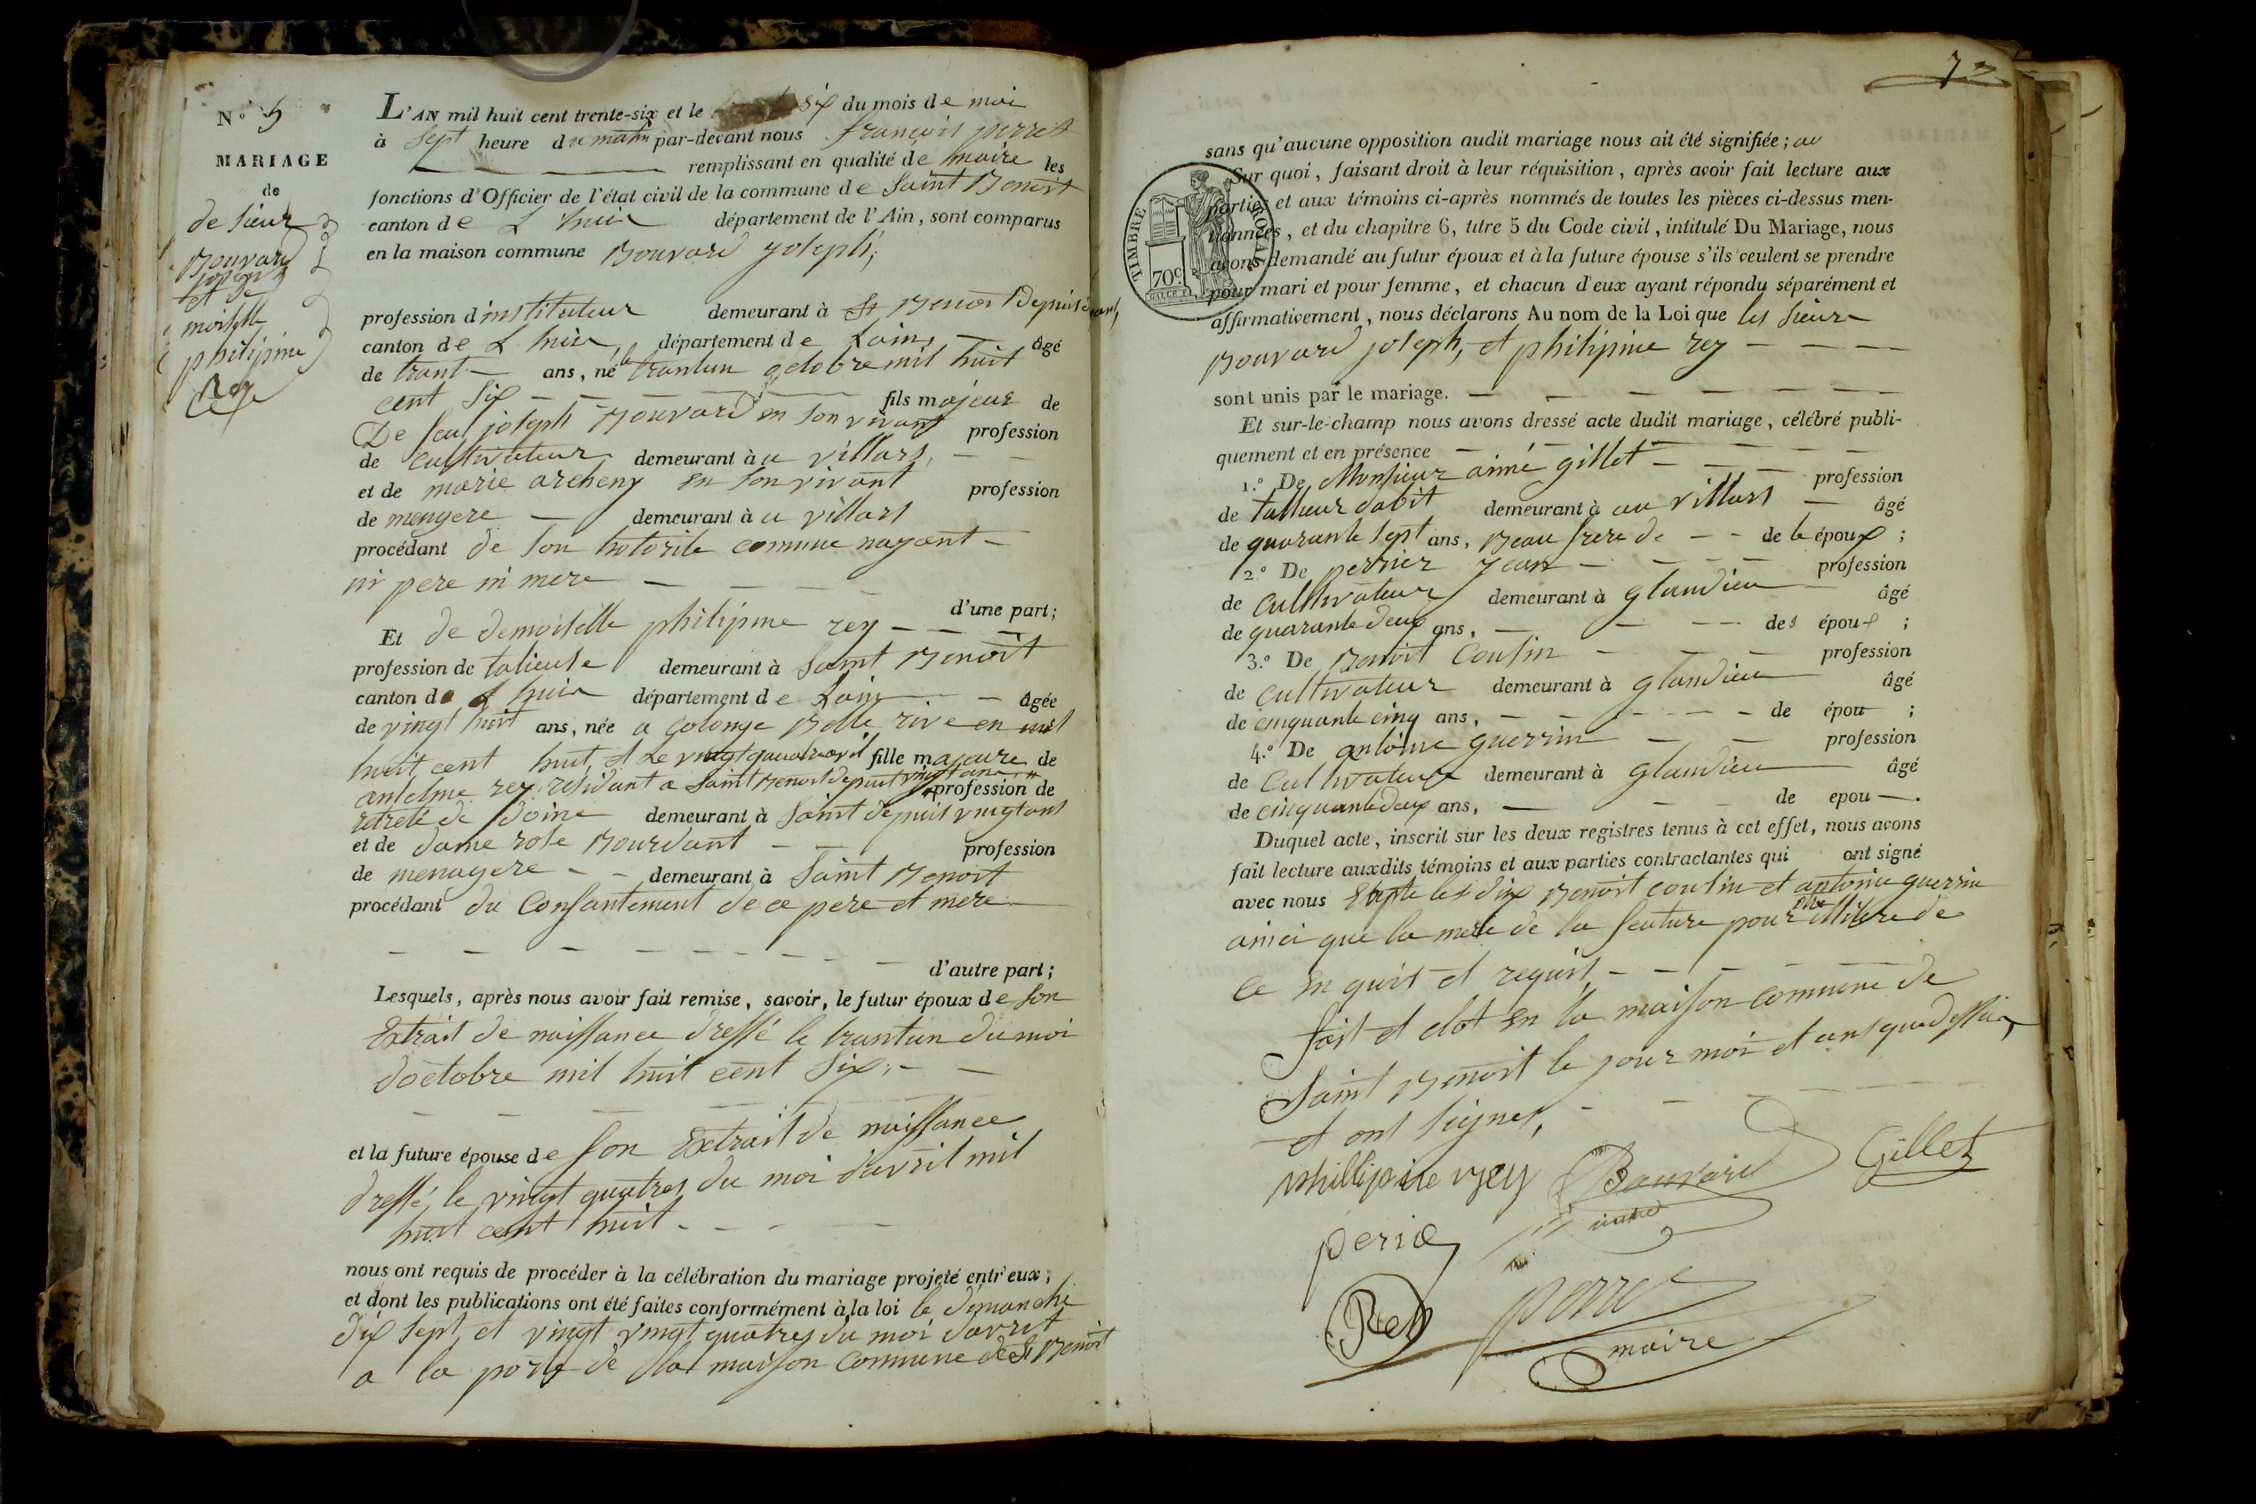 N.º 5
MARIAGE
de
de sieur
Bouvard
joseph
et de
moiselle
philipine
Rey
L'AN mil huit cent trente-six et le six du mois de moi
à sept heure du matin par-devant nous françois perret
remplissant en qualité de maire les
fonctions d'Officier de l'état civil de la commune de Saint Benoit
canton de L'huis département de l'Ain, sont comparus
en la maison commune Bouvard joseph,
profession d'instituteur demeurant à St Benoit depuis
canton de L'huis, département de Lain, âgé
de trant ans, né le trantun octobre mil huit
cent six fils majeur de
De feu joseph Bouvard en son vivant profession
de cultivateur demeurant à a villars,
et de marie archeny en son vivant profession
de mengere demeurant à a villars
procédant de son hotorite comune nayant
ni pere ni mere
d'une part;
Et de demoiselle philipine rey
profession de talieuse demeurant à Saint Benoit
canton de L'huis département de Lain âgée
de vingt huit ans, née a colonge Belle rive en mil
huit cent huit, et le vingt quatre avril fille majeure de
anselme rey residant a Saint Benoit depuis vingt ans profession de
retreté de doine demeurant à Saint depuis vingt ans
et de dame rose Bourdant profession
de menagere demeurant à Saint Benoit
procédant du Consantement de ce pere et mere
d'autre part;
Lesquels, après nous avoir fait remise, savoir, le futur époux de son
Extrait de naissance dressé le trantun du moi
doctobre mil huit cent six,
et la future épouse de son Extrait de naissance
dressé le vingt quatres du moi d'avril mil
huit cent huit
nous ont requis de procéder à la célébration du mariage projeté entr'eux;
et dont les publications ont été faites conformément à la loi le dimanche
dix sept, et vingt vingt quatres du moi davril
a la porte de la maison Commune de St Benoit
TIMBRE ROYAL
70c
sans qu'aucune opposition audit mariage nous ait été signifiée;
Sur quoi, faisant droit à leur réquisition, après avoir fait lecture aux
parties et aux témoins ci-après nommés de toutes les pièces ci-dessus men-
tionnées, et du chapitre 6, titre 5 du Code civil, intitulé Du Mariage, nous
avons demandé au futur époux et à la future épouse s'ils veulent se prendre
pour mari et pour femme, et chacun d'eux ayant répondu séparément et
affirmativement, nous déclarons Au nom de la Loi que les sieurs
Bouvard joseph, et philipine rey
sont unis par le mariage.
Et sur-le-champ nous avons dressé acte dudit mariage, célébré publi-
quement et en présence
1.º De Monsieur aimé gillet profession
de tallieur dabit demeurant à au villars âgé
de quarante sept ans, Beau frere de de le époux;
2.º De perrier jean profession
de Cultivateur demeurant à glandieu âgé
de quarante deux ans, des époux;
3.º De Benoit Coutin profession
de cultivateur demeurant à glandieu âgé
de cinquante cinq ans, de épou;
4.º De antoine guerrin profession
de Cultivateur demeurant à glandieu âgé
de cinquante deux ans, de epou.
Duquel acte, inscrit sur les deux registres tenus à cet effet, nous avons
fait lecture auxdits témoins et aux parties contractantes qui ont signé
avec nous Benoit coutin et antoine guerrin
ainci que la mere de la feuture pour illitere de
ce en quis et requis,
fait et clot en la maison commune de
Saint Benoit le jour moi et ans que dessus,
et ont signer,
phillipine rey Bouvard Gillet
perie
Rey perret
maire